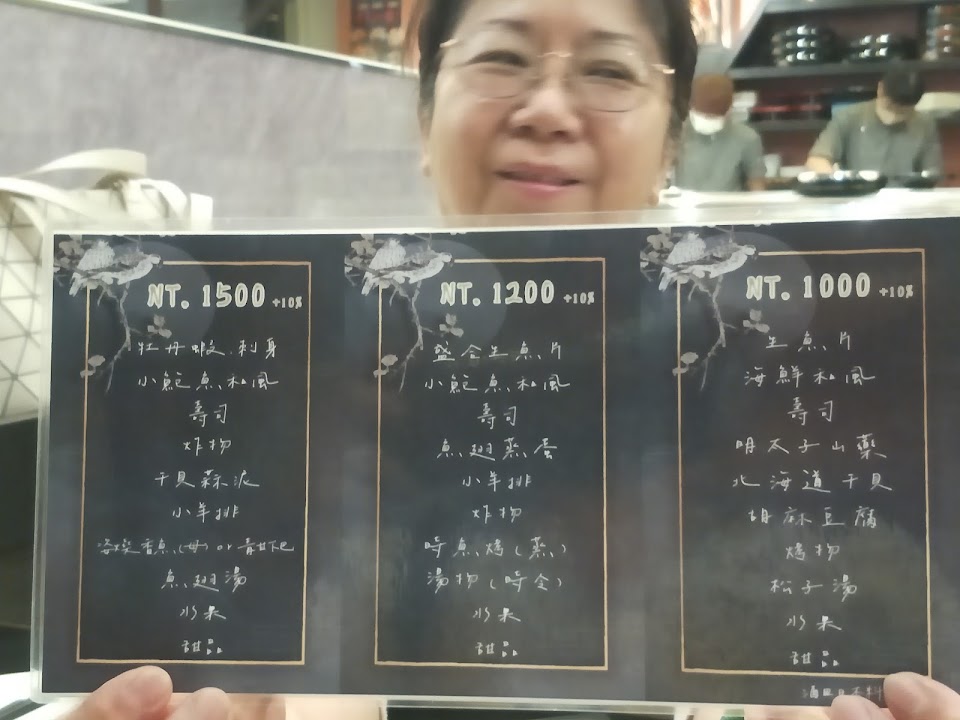 NT. 1500 +10%
牡丹蝦.刺身
小鮑魚和風
壽司
炸物
干貝蒜泥
小羊排
香魚(母)or 青甘下巴
魚翅湯
水果
甜品
NT. 1200 +10%
盛合生魚片
小鮑魚和風
壽司
魚翅蒸蛋
小羊排
炸物
時魚烤(蒸)
湯物(時令)
水果
甜品
NT. 1000 +10%
生魚片
海鮮和風
壽司
明太子山藥
北海道干貝
胡麻豆腐
烤物
松子湯
水果
甜品
日本料